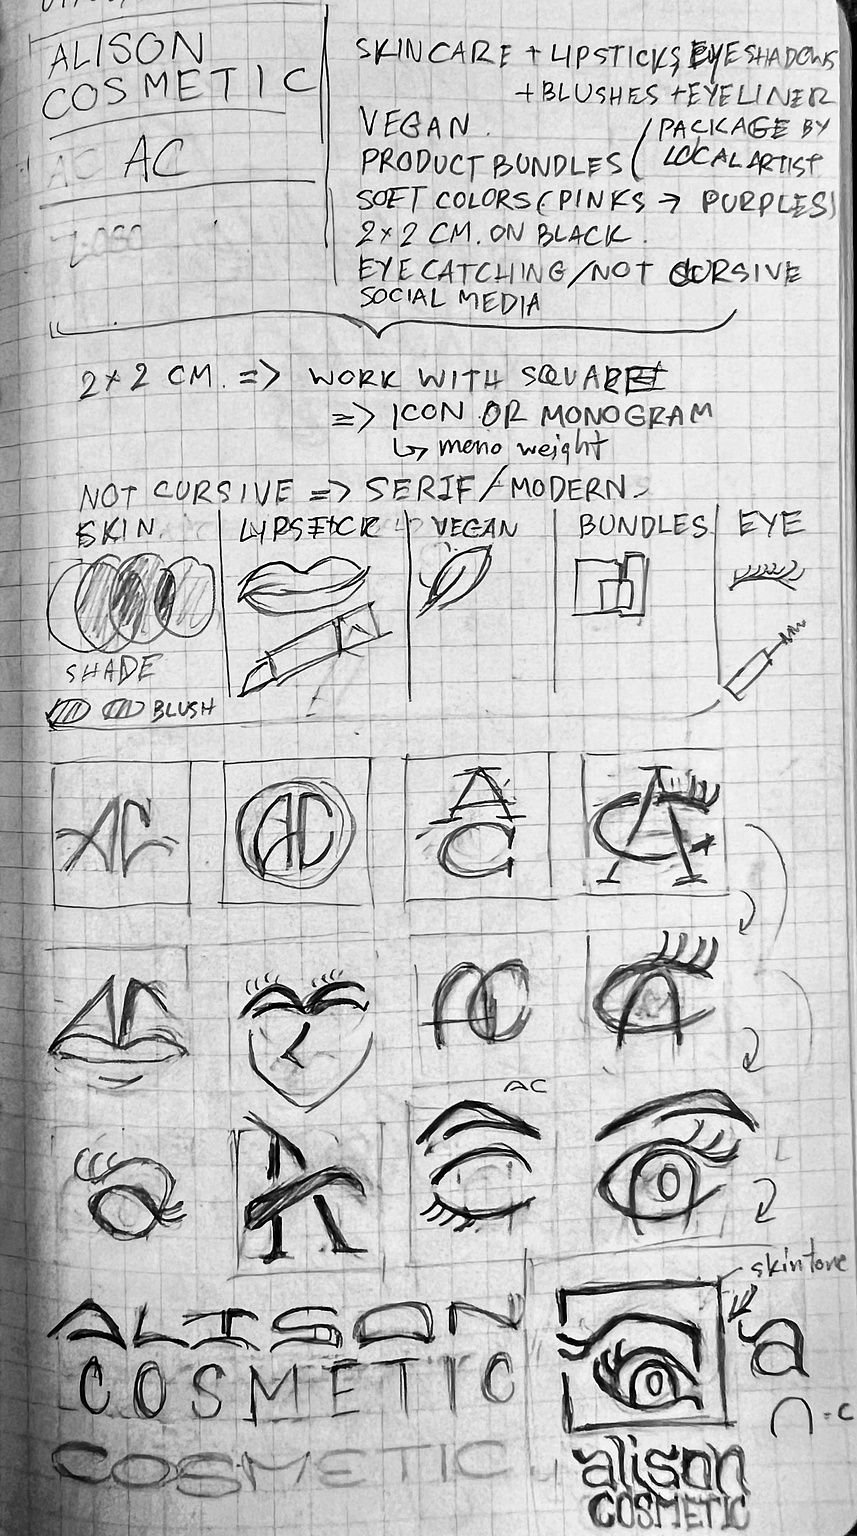 ALISON
COSMETIC
AC AC
SKINCARE + LIPSTICKS, EYESHADOWS
+ BLUSHES + EYELINER
VEGAN.
PRODUCT BUNDLES ( PACKAGE BY
LOCAL ARTIST
SOFT COLORS (PINKS → PURPLES)
2×2 CM. ON BLACK.
EYE CATCHING/NOT CURSIVE
SOCIAL MEDIA
2×2 CM. => WORK WITH SQUARE
=> ICON OR MONOGRAM
↳ mono weight
NOT CURSIVE => SERIF/MODERN
SKIN. LIPSTICK VEGAN BUNDLES EYE
SHADE
BLUSH
AC AC
A
C
AC
AC
skintone
ALISON
COSMETIC
COSMETIC
a
∩ = C
alison
COSMETIC